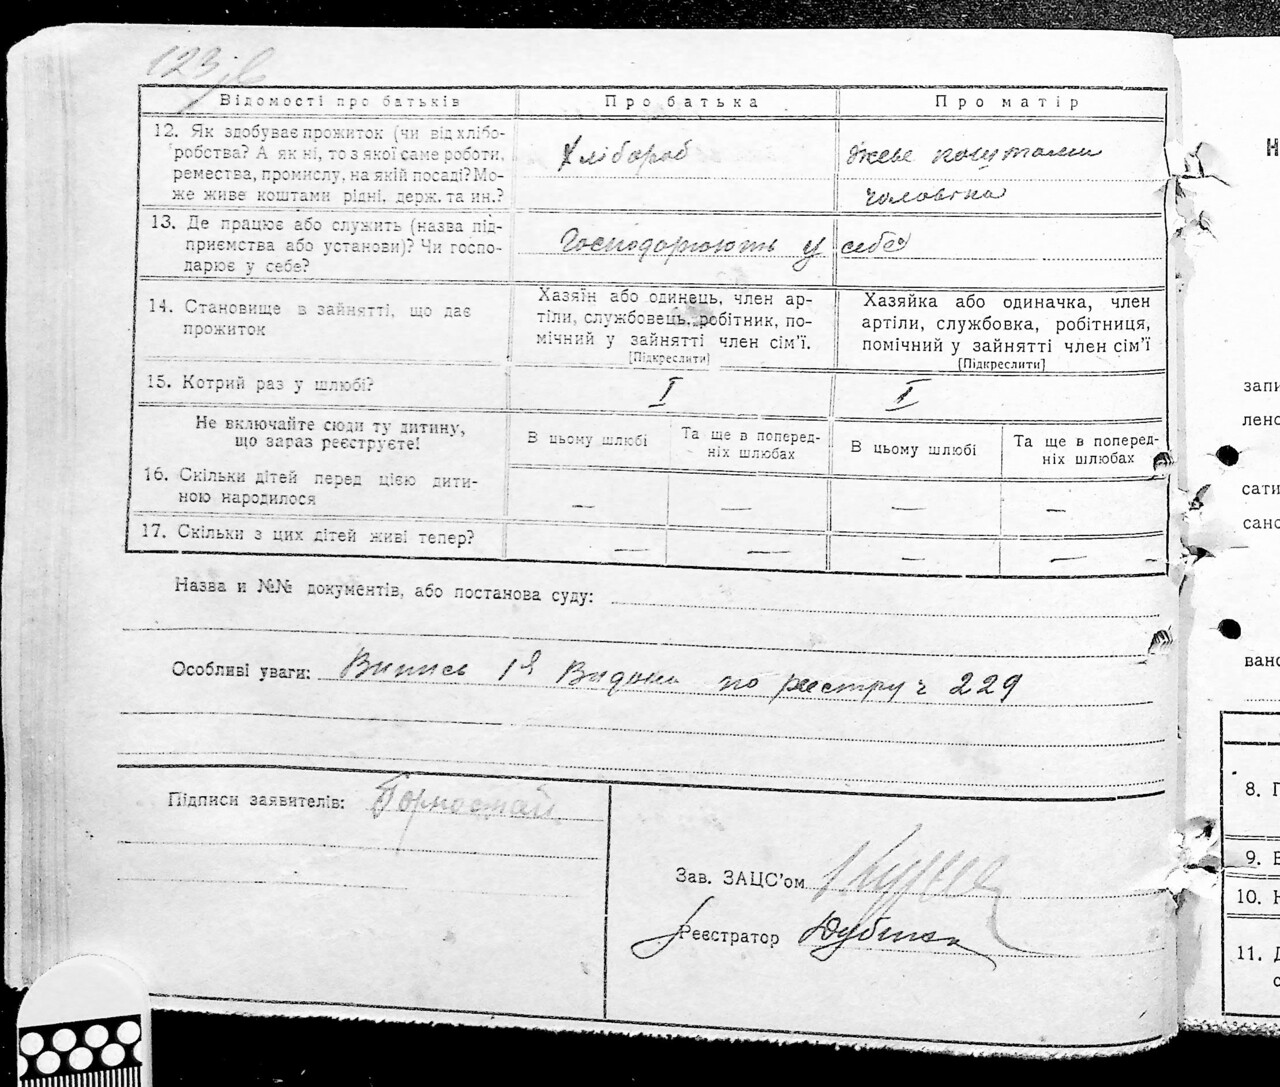 123 зв
Відомості про батьків
Про батька
Про матір
12. Як здобуває прожиток (чи від хлібо-
робства? А як ні, то з якої саме роботи,
ремества, промислу, на якій посаді? Мо-
же живе коштами рідні, держ. та ин.?
Хлібороб
живе коштами
чоловіка
13. Де працює або служить (назва під-
приємства або установи)? Чи госпо-
дарює у себе?
Господарюють у себе
14. Становище в зайнятті, що дає
прожиток
Хазяїн або одинець, член ар-
тіли, службовець, робітник, по-
мічний у зайнятті член сім’ї.
[Підкреслити]
Хазяйка або одиначка, член
артіли, службовка, робітниця,
помічний у зайнятті член сім’ї
[Підкреслити]
15. Котрий раз у шлюбі?
I
I
Не включайте сюди ту дитину,
що зараз реєструєте!
В цьому шлюбі
Та ще в поперед-
ніх шлюбах
В цьому шлюбі
Та ще в поперед-
ніх шлюбах
16. Скільки дітей перед цією дити-
ною народилося
— — — —
17. Скільки з цих дітей живі тепер?
— — — —
Назва и №№ документів, або постанова суду:
Особливі уваги: Випись 1я Видана по реєстру ч 229
Підписи заявителів: Горностай
Зав. ЗАЦС’ом
Реєстратор
Н
запи
лено
сати
сано
вано
8. П
9. В
10. Н
11. Д
с